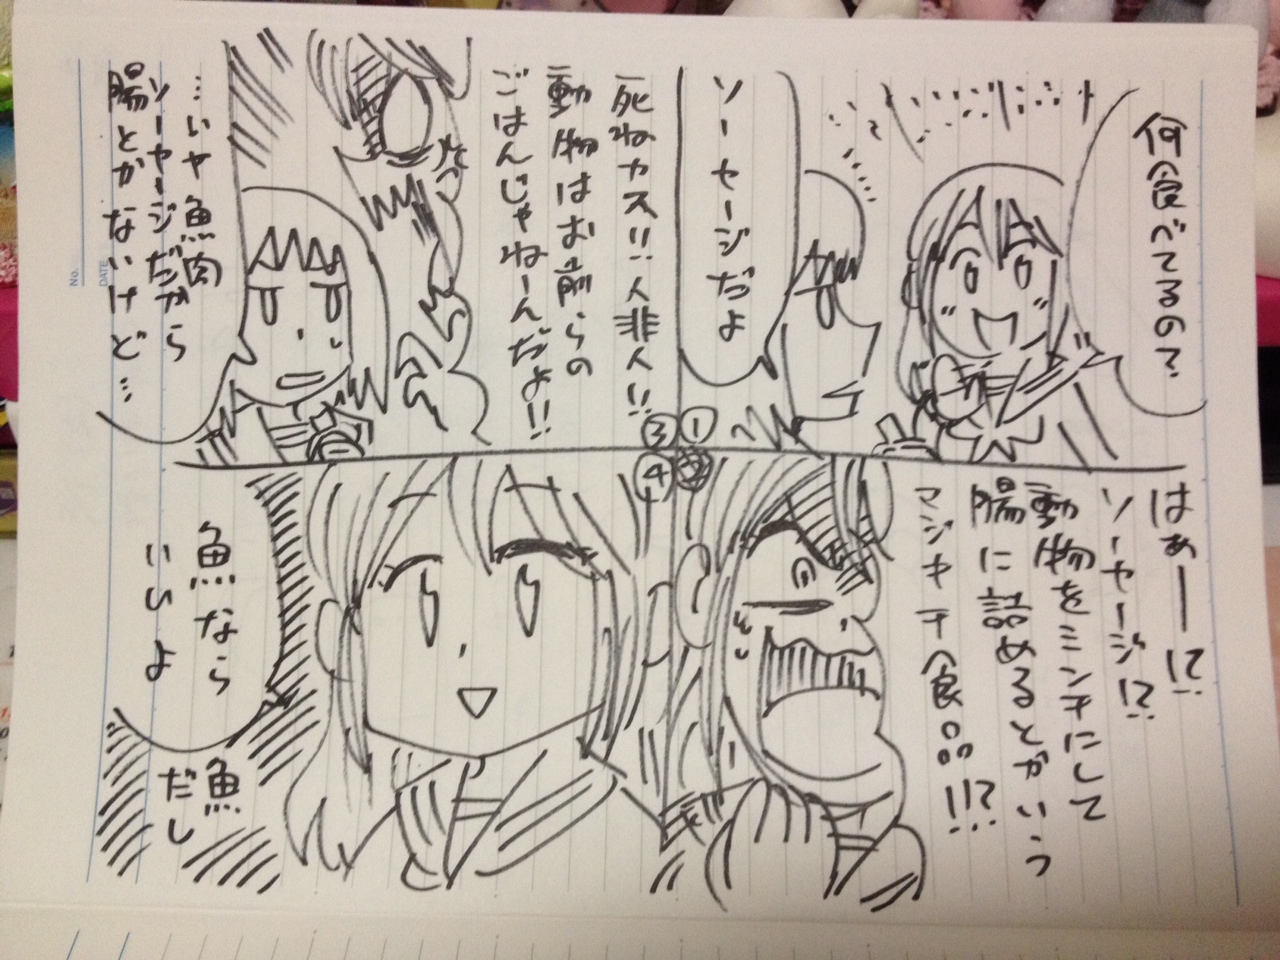 何食べてるの?
①
ソーセージだよ
はぁーー!?
ソーセージ!?
動物をミンチにして
腸に詰めるとかいう
マジキチ食品!!?
③
死ねカス!!人非人!!
動物はお前らの
ごはんじゃねーんだよ!!
…いや魚肉
ソーセージだから
腸とかないけど…
④
魚なら
いいよ
魚
だし
No.
DATE